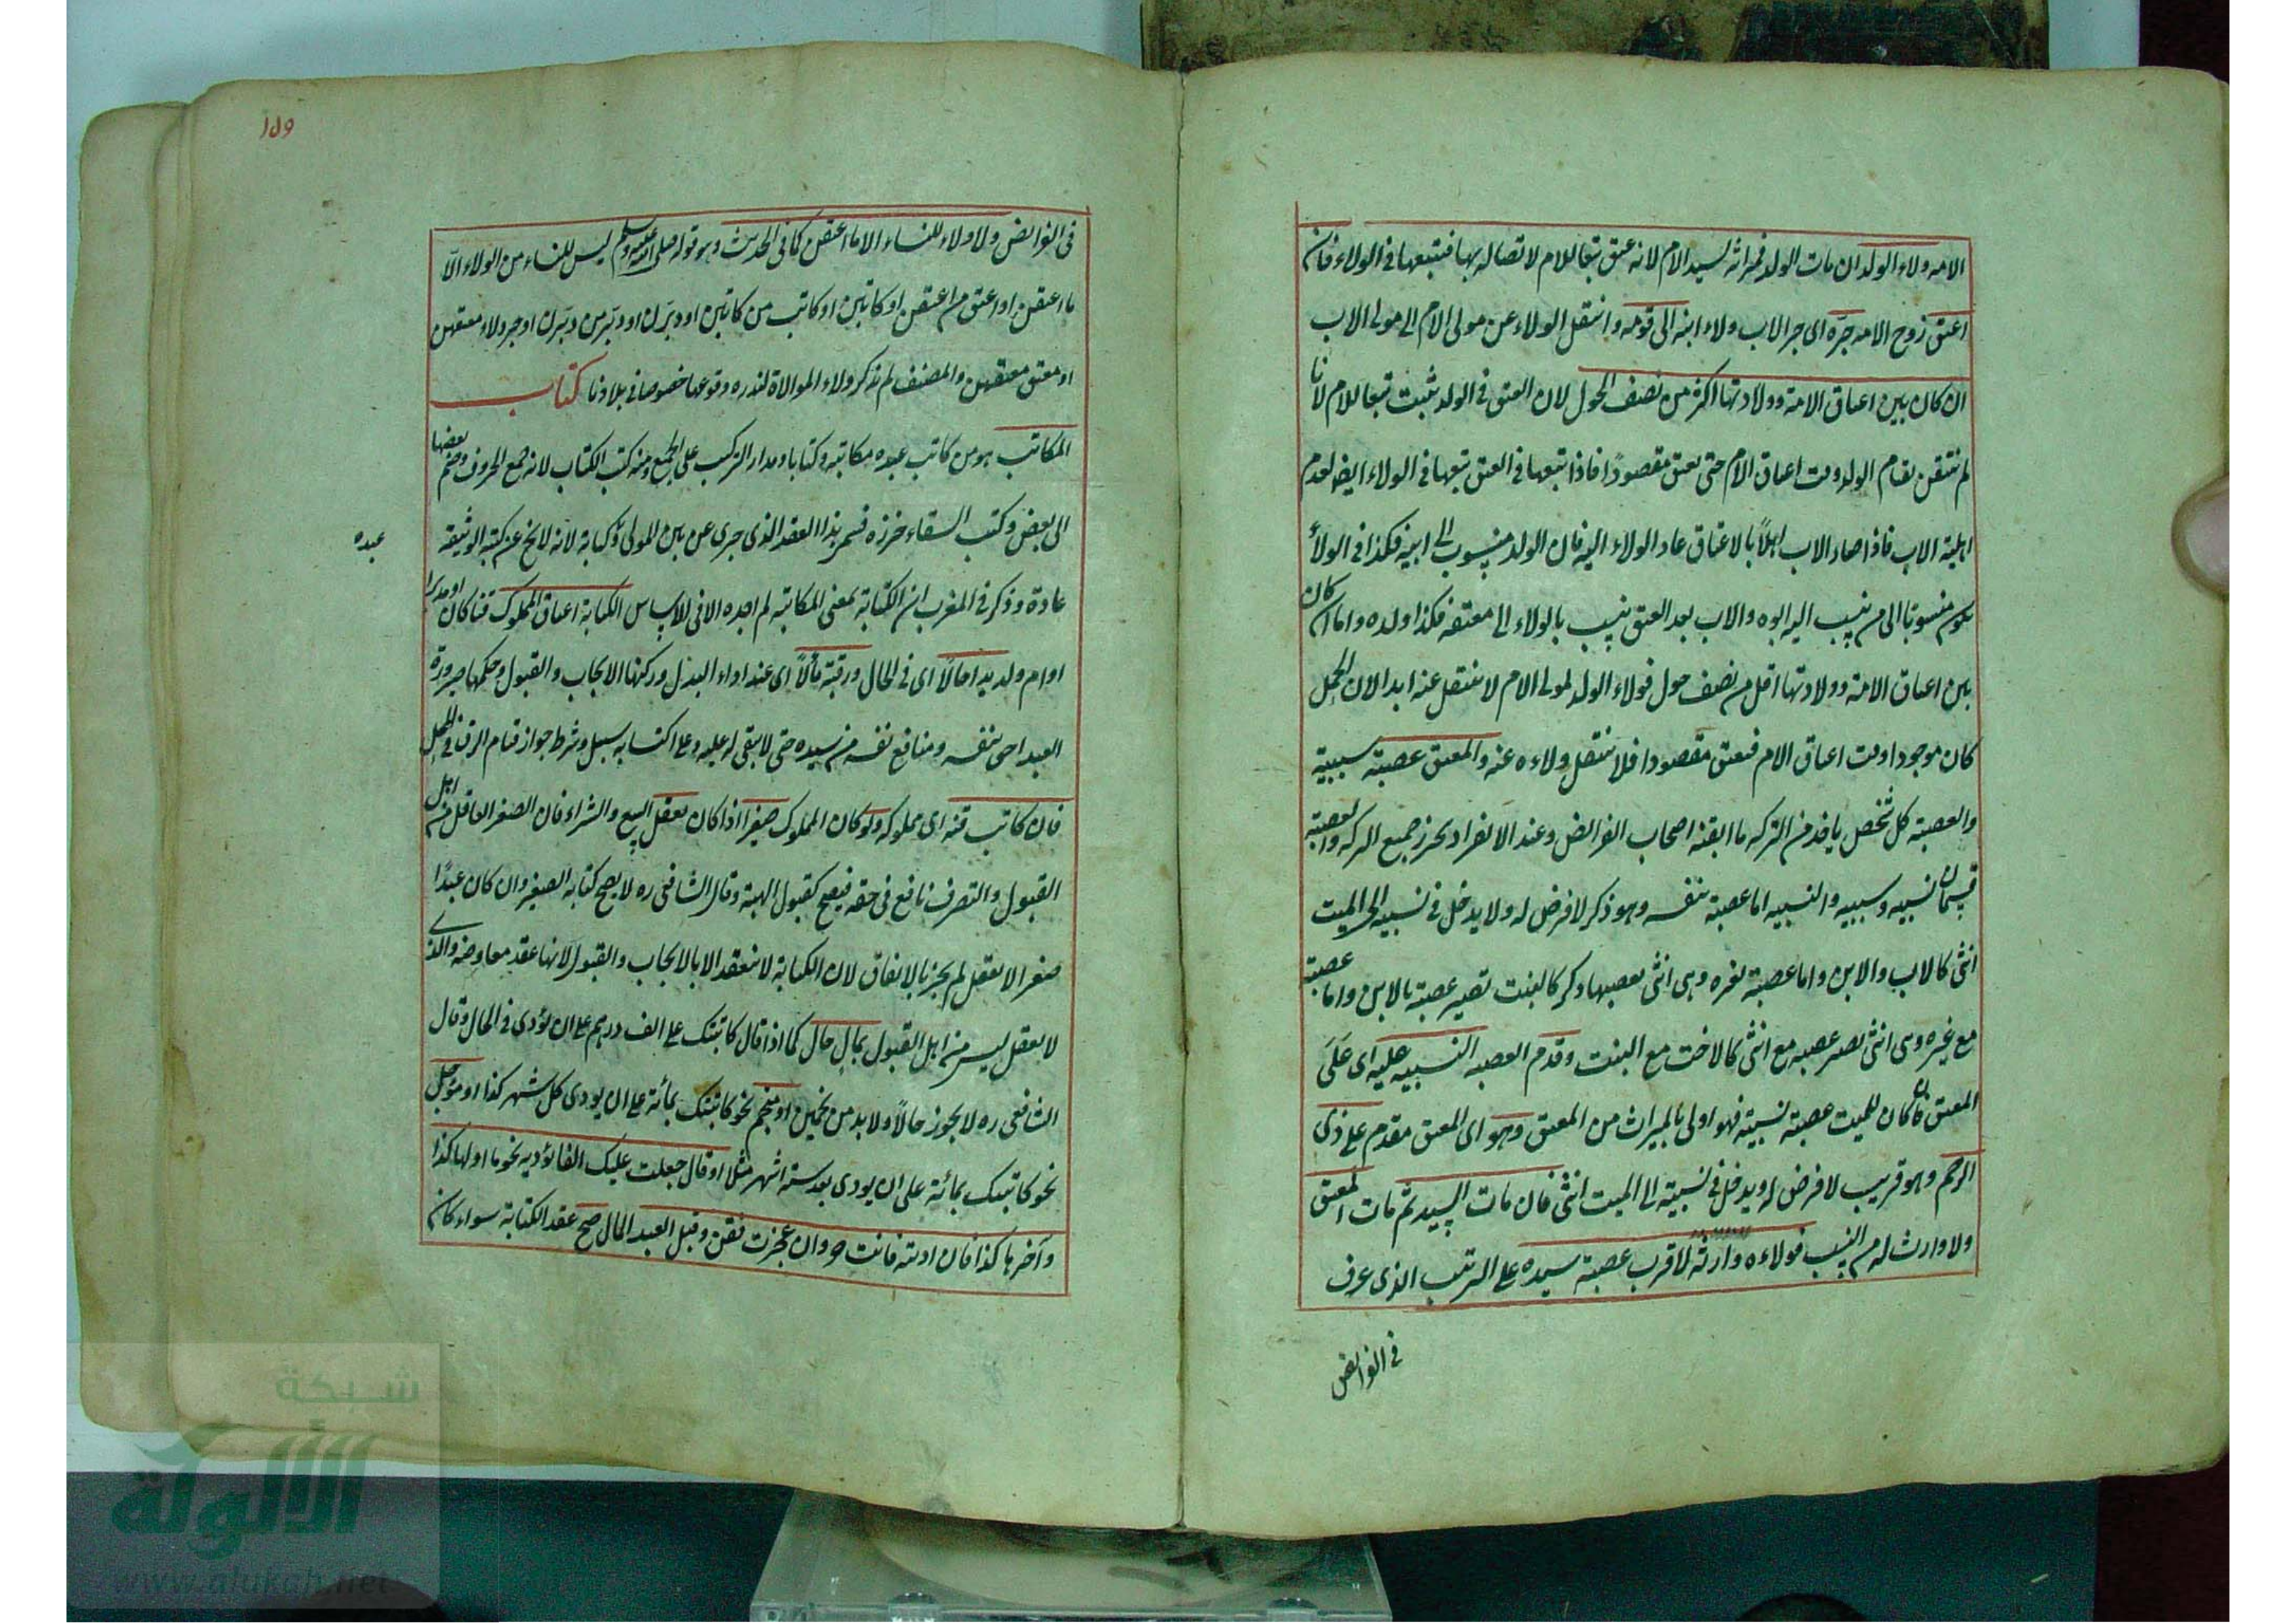 الامه ولاء الولد ان مات الولد فميراثه لسيد الام لانه عتق تبعا للام لاتصاله بها فتبعها في الولاء فان
اعتق زوج الامه جرّه اى جر الاب ولاء ابنه الى قومه وانتقل الولاء عن مولى الام الى مولى الاب
ان كان بين اعتاق الامة وولادتها اكثر من نصف الحول لان العتق في الولد ثبت تبعا للام لانا
لم نتيقن بقيام الولد وقت اعتاق الام حتى يعتق مقصودًا فاذا تبعها في العتق تبعها في الولاء ايضا لعدم
اهلية الاب فاذا صار الاب اهلاً بالاعتاق عاد الولاء اليه فان الولد منسوب الى ابيه فكذا في الولاء
يكون منسوبا الى من ينسب اليه ابوه والاب بعد العتق ينسب بالولاء الى معتقه فكذا ولده واما ان كان
بين اعتاق الامة وولادتها اقل من نصف حول فولاء الولد لمولى الام لا ينتقل عنه ابدا لان الحمل
كان موجودا وقت اعتاق الام فيعتق مقصودا فلا ينتقل ولاءه عنه والمعتق عصبة سببية
والعصبة كل شخص ياخذ من التركه ما ابقته اصحاب الفرائض وعند الانفراد يحرز جميع التركه والعصبة
قسمان نسبيه وسببيه والنسبيه اما عصبة بنفسه وهو ذكر لا فرض له ولا يدخل في نسبته الى الميت
انثى كالاب والابن واما عصبة بغيره وهى انثى يعصبها ذكر كالبنت تصير عصبة بالابن واما عصبة
مع غيره وهى انثى تصير عصبه مع انثى كالاخت مع البنت وقدم العصبه النسبيه عليه اى عَلَى
المعتق فان كان للميت عصبة نسبية فهو اولى بالميراث من المعتق وهو اى المعتق مقدم على ذى
الرحم وهو قريب لا فرض له ويدخل في نسبته الى الميت انثى فان مات السيد ثم مات المعتق
ولا وارث له من النسب فولاءه وارثه لاقرب عصبة سيده على الترتيب الذى عرف
في الفرائض
١٥٩
في الفرائض ولا ولاء للنساء الا ما اعتقن كما في الحديث وهو قوله صلى الله عليه وسلم ليس للنساء من الولاء الّا
ما اعتقن او اعتق من اعتقن او كاتبن او كاتب من كاتبن او دبّرن او دبّر من دبّرن او جر ولاء معتقهن
او معتق معتقهن والمصنف لم يذكر ولاء الموالاة لندره وقوعها خصوصا في بلادنا كتاب
المكاتب هو من كاتب عبده مكاتبة وكتابا ومدار التركيب على الجمع ومنه كتب الكتاب لانه جمع الحروف وضم بعضها
الى بعض وكتب السقاء خرزه فسمى هذا العقد الذى جرى عن بين المولى وكتابة لانه لا يخ عن كتبة الوثيقة
عبده
عادة وذكر في المغرب ان الكتابة بمعنى المكاتبة لم اجده الا في الاساس الكتابة اعتاق المملوك قنا كان او مدبرا
او ام ولد يدا حالاً اى في الحال ورقبة مآلاً اى عند اداء البدل وركنها الايجاب والقبول وحكمها صيرورة
العبد احق بنفسه ومنافع نفسه من سيده حتى لا يبقى له عليه وعلى اكتسابه سبيل وشرط جوازه قيام الرق في المحل
فان كاتب قنه اى مملوكه ولو كان المملوك صغيرا اذا كان يعقل البيع والشراء فان الصغير العاقل من اهل
القبول والتصرف نافع في حقه فيصح كقبول الهبة وقال الشافعى ره لا يصح كتابه الصغير وان كان عبدًا
صغيرا لا يعقل لم يجز بالاتفاق لان الكتابة لا تنعقد الا بالايجاب والقبول لانها عقد معاوضه والذى
لا يعقل ليس من اهل القبول بمال حال كما اذا قال كاتبتك على الف درهم على ان تؤدى في الحال وقال
الشافعى ره لا يجوز حالاً ولا بد من نجمين او منجم نحو كاتبتك بمائة على ان يودى كل شهر كذا او مؤجل
نحو كاتبتك بمائة على ان يودى بعد ستة اشهر مثلا او قال جعلت عليك الفا تؤديه نجوما اولها كذا
وآخرها كذا فان اديته فانت حر وان عجزت فقن وقبل العبد المال صح عقد الكتابة سواء كان
شبكة
الألوكة
www.alukah.net